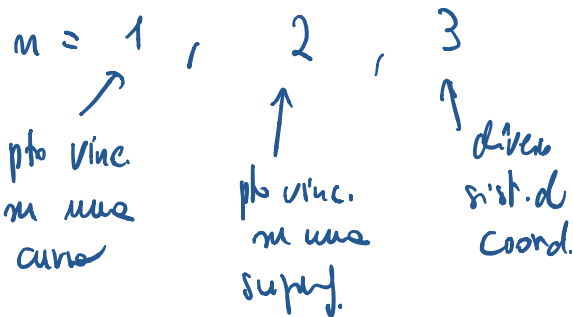 n = 1 , 2 , 3
pto vinc.
su una
curva
pto vinc.
su una
superf.
diverso
sist. d
coord.